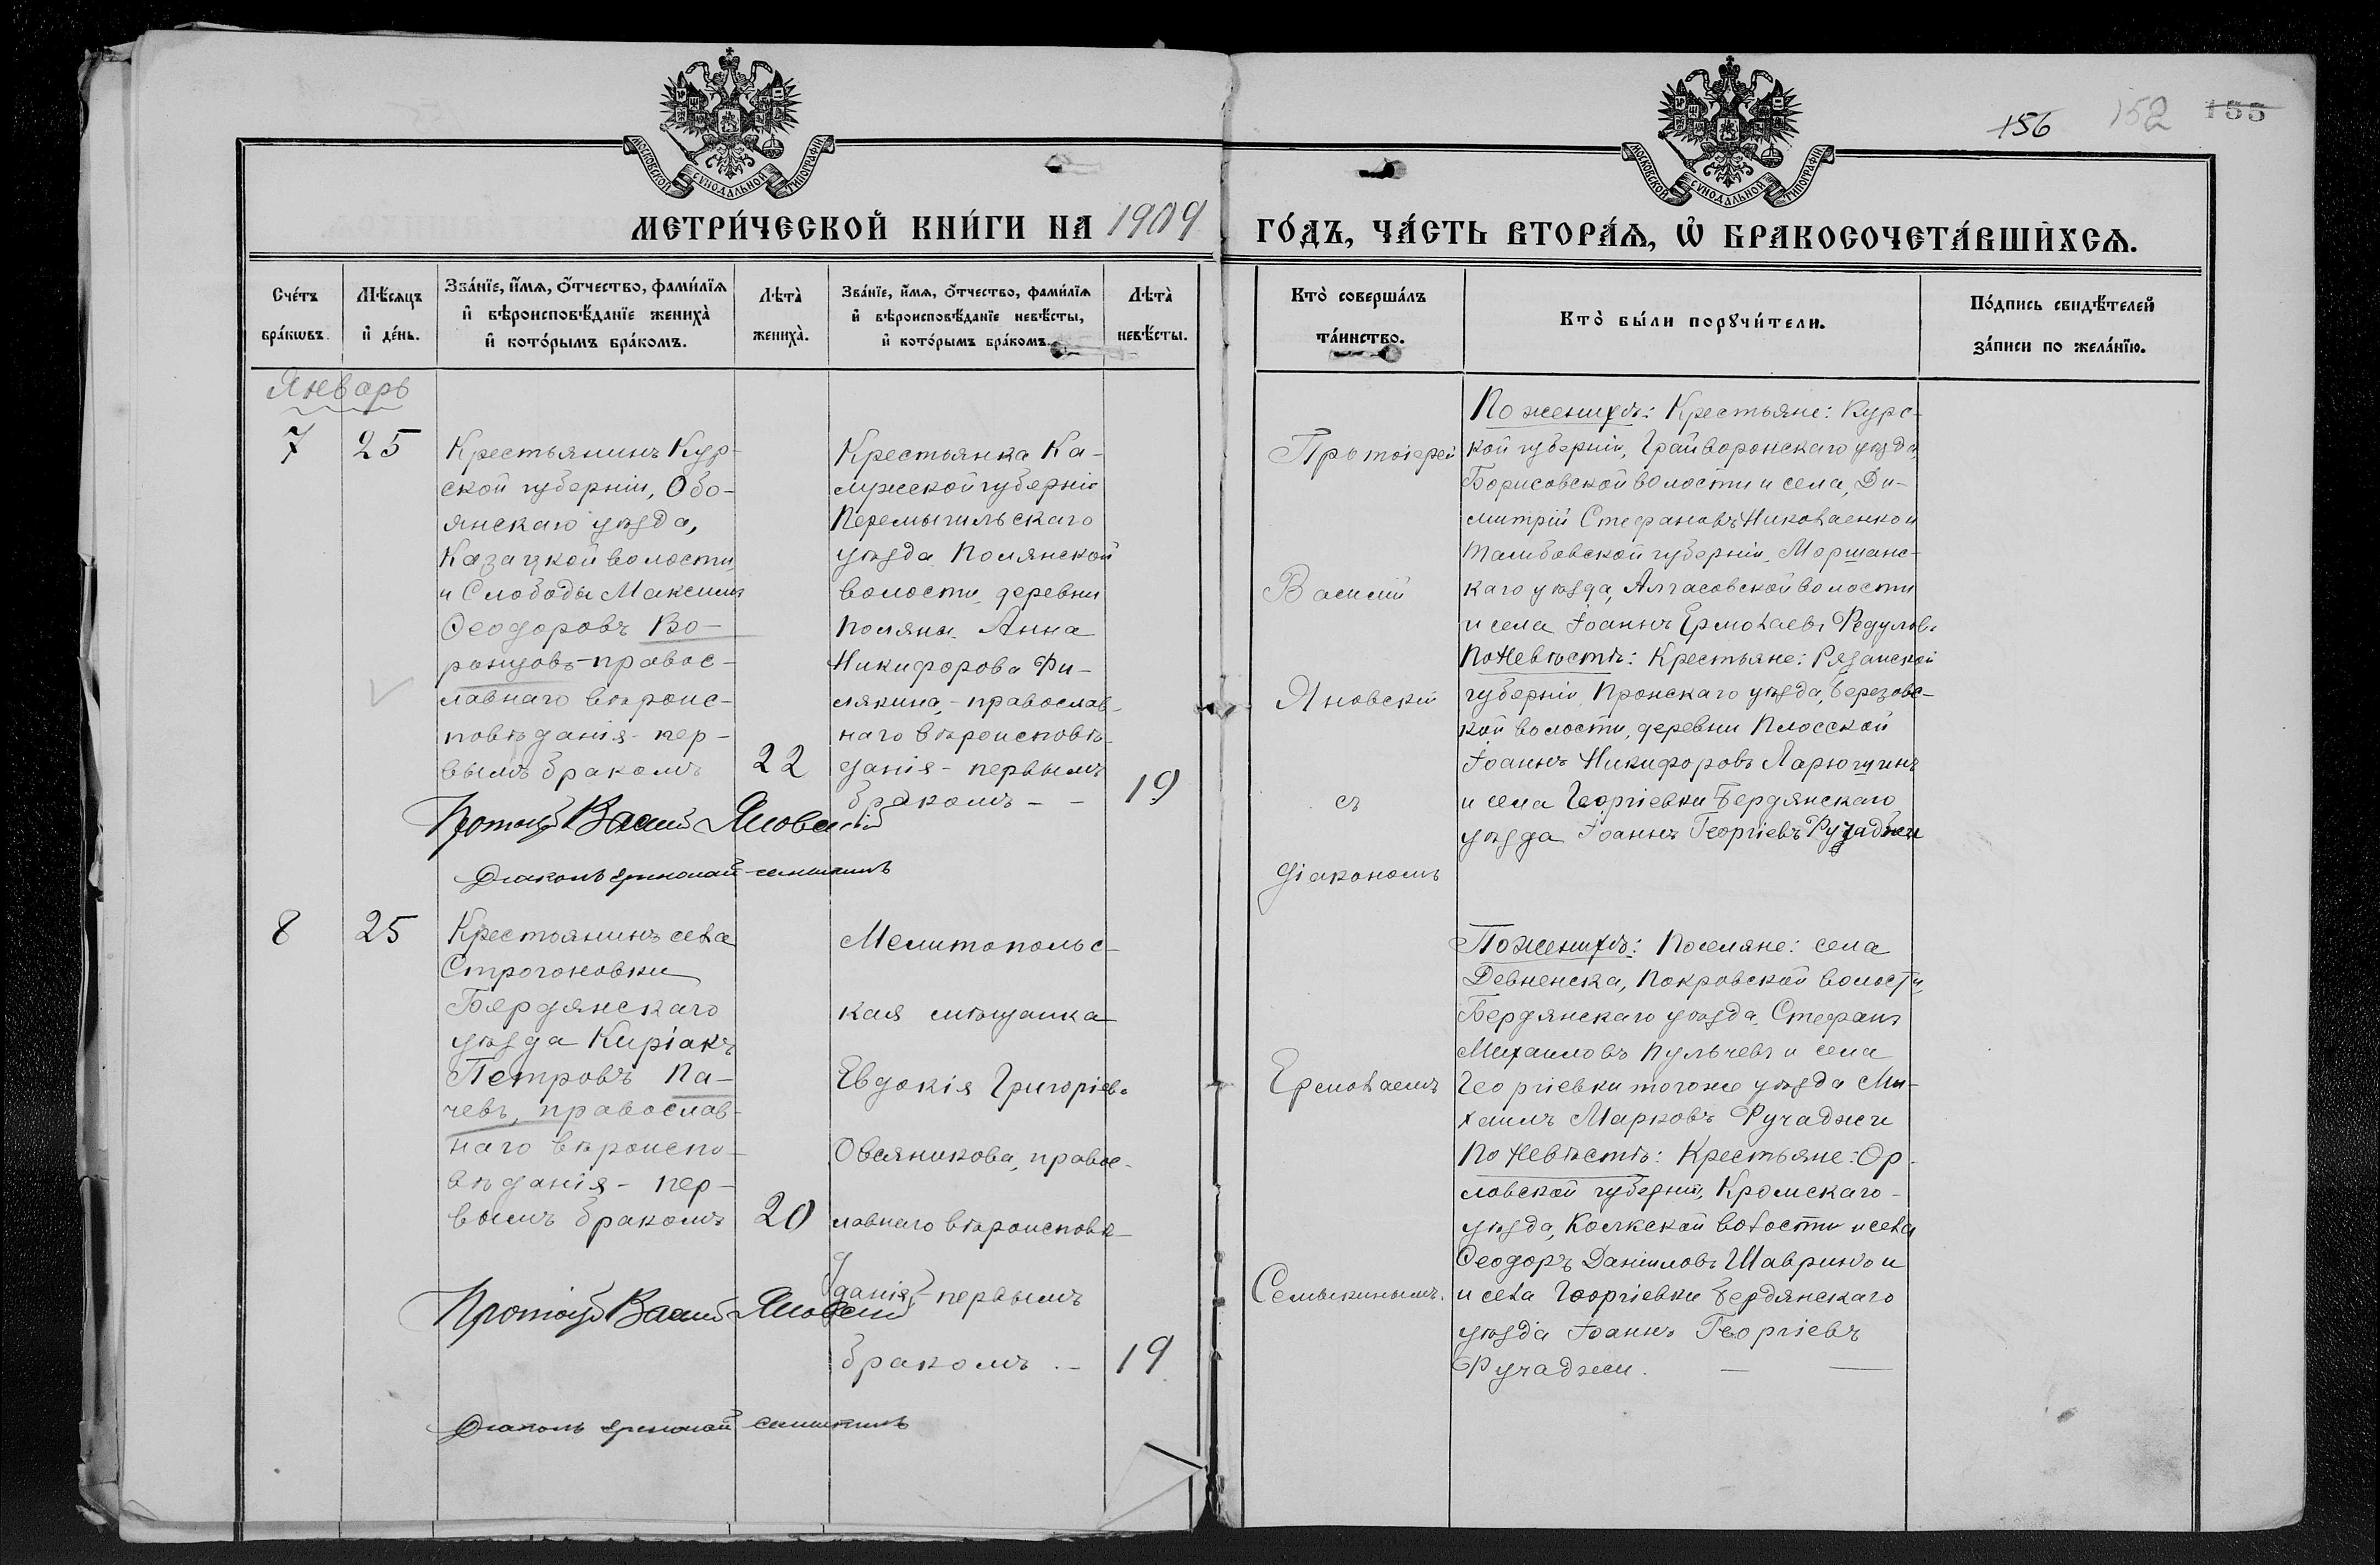 156 152 155
МОСКОВСКОЙ СѴНОДАЛЬНОЙ ТИПОГРАФІИ
МОСКОВСКОЙ СѴНОДАЛЬНОЙ ТИПОГРАФІИ
МЕТРИ́ЧЕСКОЙ КНИ́ГИ НА 1909 ГО́ДЪ, ЧА́СТЬ ВТОРА́Ѧ, Ѡ҆ БРАКОСОЧЕТА́ВШИХСѦ.
Сче́тъ
бра́кѡвъ.
Мѣ́сѧцъ
и҆ де́нь.
Зва́нїе, и҆́мѧ, ѻ҆́тчество, фами́лїѧ
и҆ вѣроисповѣ́данїе жениха̀
и҆ кото́рымъ бра́комъ.
Лѣта̀
жениха̀.
Зва́нїе, и҆́мѧ, ѻ҆́тчество, фами́лїѧ
и҆ вѣроисповѣ́данїе невѣ́сты,
и҆ кото́рымъ бра́комъ.
Лѣта̀
невѣ́сты.
Кто̀ соверша́лъ
та́инство.
Кто̀ бы́ли порꙋчи́тели.
По́дпись свидѣ́телей
за́писи по жела́нїю.
Январь
7
25
Крестьянинъ Кур-
ской губерніи, Обо-
янскаго уѣзда,
Казацкой волости
и Слободы Максимъ
Ѳеодоровъ Во-
ронцовъ-правос-
лавнаго вѣроис-
повѣданія- пер-
вымъ бракомъ
22
Крестьянка Ка-
лужской губерніи
Перемышльскаго
уѣзда Полянской
волости, деревни
Поляны Анна
Никифорова Фи-
лякина,- православ-
наго вѣроисповѣ-
данія- первымъ
бракомъ - -
19
Протоіер Василій Яновскій
Діаконъ Ермолай Семыкинъ
Протоіерей
Василій
Яновскій
съ
діакономъ
По женихѣ: Крестьяне: Курс-
кой губерніи, Грайворонскаго уѣзда,
Борисовской волости и села, Ди-
митрій Стефановъ Николаенко и
Тамбовской губерніи, Моршанс-
каго уѣзда, Алгасовской волости
и села Іоаннъ Ермолаевъ Федуловъ
По невѣстѣ: Крестьяне: Рязанской
губерніи, Пронскаго уѣзда, Березовс-
кой волости, деревни Плосской
Іоаннъ Никифоровъ Ларюшинъ
и села Георгіевки Бердянскаго
уѣзда Іоаннъ Георгіевъ Ручаджи
8
25
Крестьянинъ села
Строгоновки
Бердянскаго
уѣзда Киріакъ
Петровъ Па-
чевъ, православ-
наго вѣроиспо-
вѣданія- пер-
вымъ бракомъ
20
Мелитопольс-
кая мѣщанка
Евдокія Григоріева
Овсяникова, правос-
лавнаго вѣроисповѣ-
данія,- первымъ
бракомъ. -
19
Протоіер Василій Яновскій
Діаконъ Ермолай Семыкинъ
Ермолаемъ
Семыкинымъ.
По женихѣ: Поселяне: села
Девненска, Покровской волости,
Бердянскаго уѣзда, Стефанъ
Михаиловъ Пульчевъ и села
Георгіевки тогоже уѣзда Ми-
хаилъ Марковъ Ручаджи
По невѣстѣ: Крестьяне: Ор-
ловской губерніи, Кромскаго-
уѣзда, Колкской волости и села
Ѳеодоръ Даніиловъ Шавринъ и
и села Георгіевки Бердянскаго
уѣзда Іоаннъ Георгіевъ
Ручаджи. — —